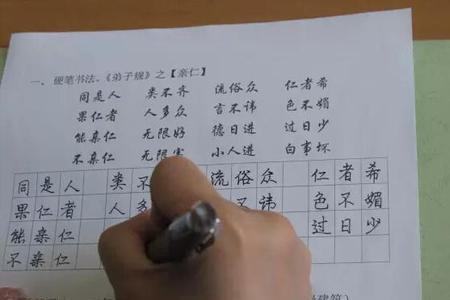 一、硬笔书法。《弟子规》之【亲仁】
同是人 类不齐 流俗众 仁者希
果仁者 人多众 言不讳 色不媚
能亲仁 无限好 德日进 过日少
不亲仁 无限害 小人进 百事坏
同是人 类不 流俗众 仁者希
果仁者 人多 不讳 色不媚
能亲仁 过日少
不亲仁